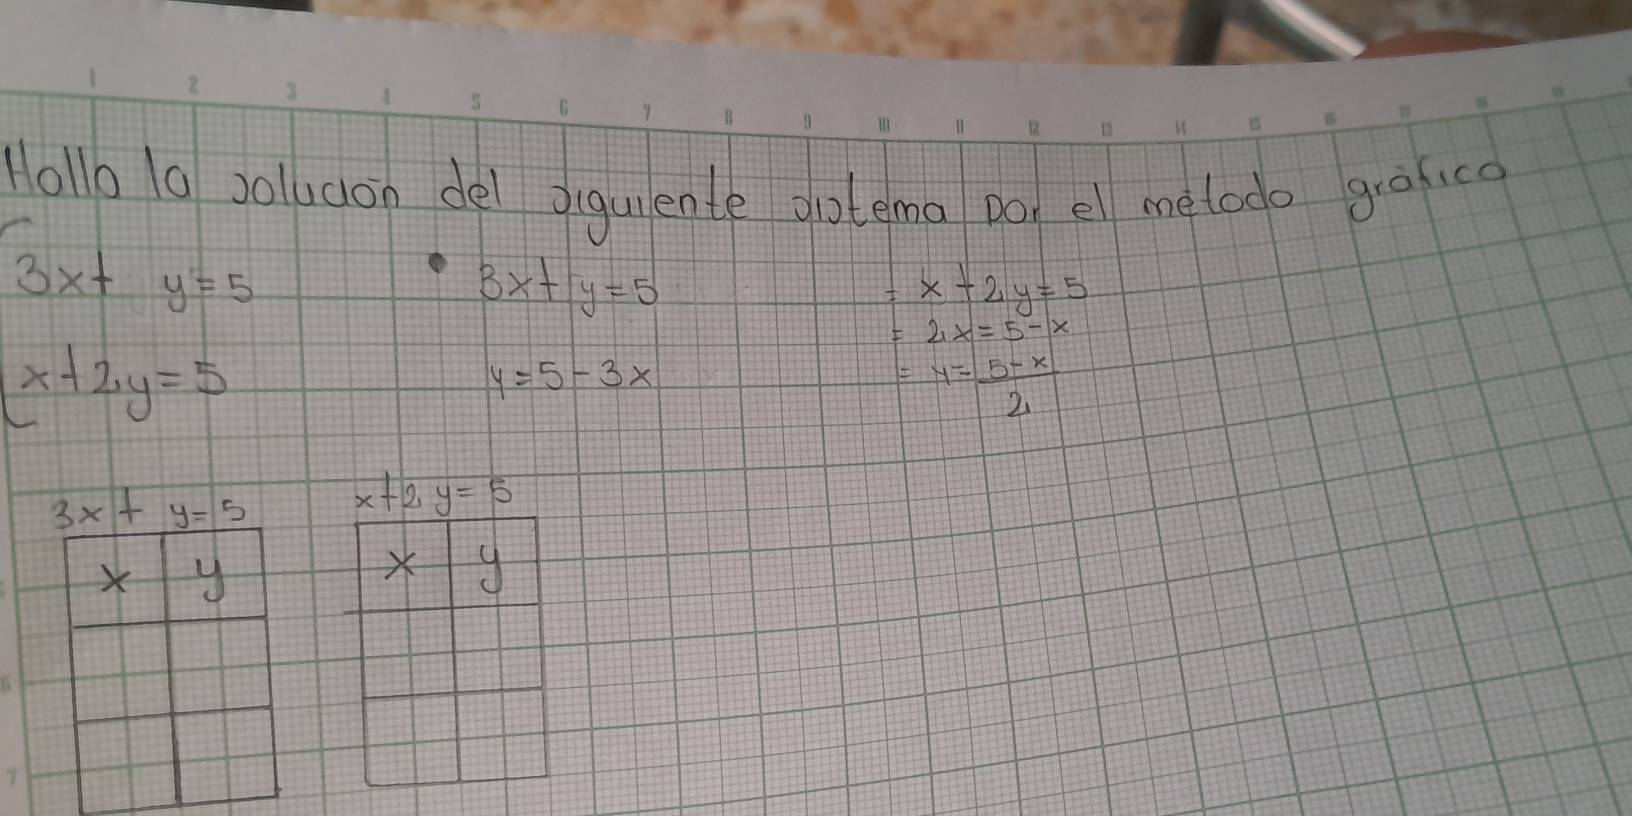 1 2 3 4 5 6 7 8 9 10 11 12 13 14 15 16 17 18 19
Hallo la solución del siguiente sistema por el método gráfico
3x+ y=5 • 3x+y=5 = x+2y=5
= 2x=5-x
x+2y=5 y=5-3x = y=5-x
2
3x+ y=5 x+2y=5
x y x y
6
7